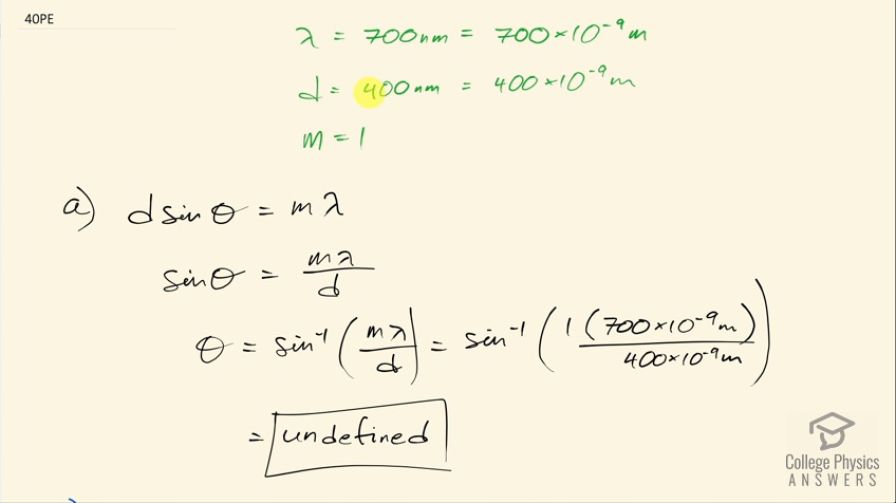 40PE
λ = 700nm = 700×10⁻⁹m
d = 400nm = 400×10⁻⁹m
m = 1
a) d sin θ = mλ
sin θ = mλ/d
θ = sin⁻¹(mλ/d) = sin⁻¹(1(700×10⁻⁹m)/400×10⁻⁹m)
= undefined
College Physics
ANSWERS